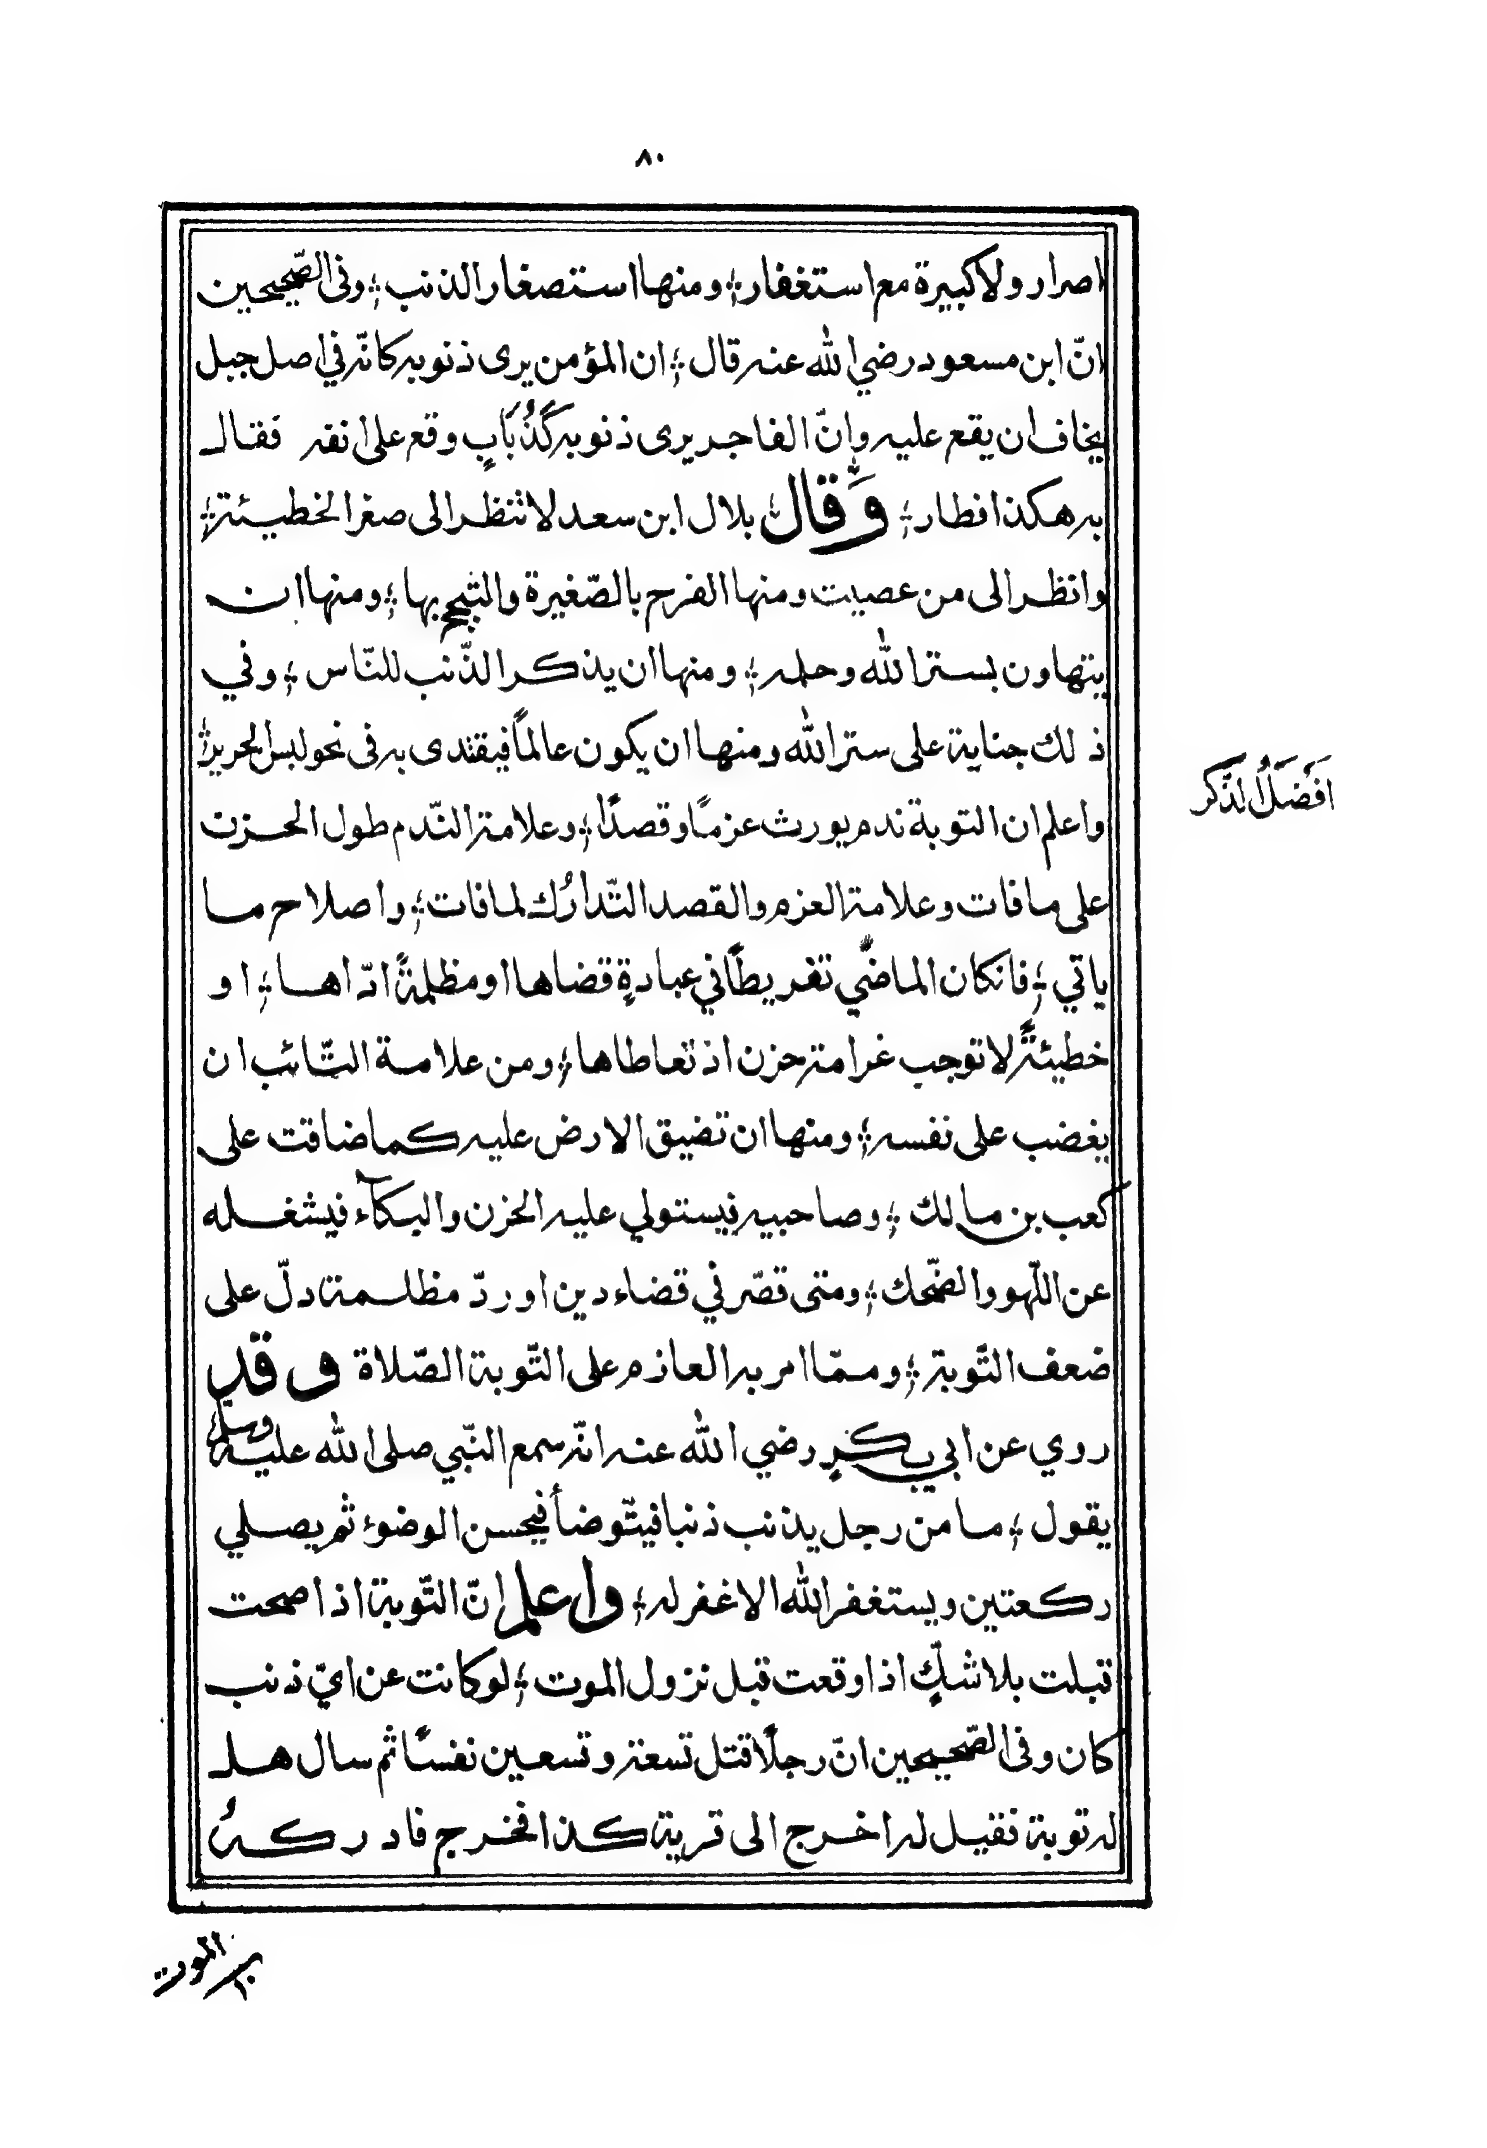 ٨٠
اصرار ولا كبيرة مع استغفار ؛ ومنها استصغار الذنب ؛ وفى الصّحيحين
انّ ابن مسعود رضي الله عنه قال ؛ ان المؤمن يرى ذنوبه كانّه في اصل جبل
يخاف ان يقع عليه وانّ الفاجر يرى ذنوبه كَذُبَابٍ وقع على انفه فقال
به هكذا فطار ؛ وَقال ؛ بلال ابن سعد لا تنظر الى صغر الخطيئة ؛
وانظر الى من عصيت ومنها الفرح بالصّغيرة والتبجح بها ؛ ومنها ان
يتهاون بستر الله وحلمه ؛ ومنها ان يذكر الذّنب للنّاس ؛ وفي
ذلك جناية على ستر الله ومنها ان يكون عالماً فيقتدى به فى نحو لبس الحرير ؛
واعلم ان التوبة ندم يورث عزمًا وقصدًا ؛ وعلامة النّدم طول الحزن
على ما فات وعلامة العزم والقصد التّدارُك لما فات ؛ واصلاح ما
ياتي ؛ فانكان الماضي تفريطًا في عبادةٍ قضاها او مظلمةً ادّاها ؛ او
خطيئةً لا توجب غرامة حزن اذ تعاطاها ؛ ومن علامة التّائب ان
يغضب على نفسه ؛ ومنها ان تضيق الارض عليه كما ضاقت على
كعب بن مالك ؛ وصاحبيه فيستولي عليه الحزن والبكآء فيشغله
عن اللّهو والضّحك ؛ ومتى قصّر في قضاء دين او ردّ مظلمة دلّ على
ضعف التّوبة ؛ وممّا امر به العازم على التّوبة الصّلاة وقد
روي عن ابي بكرٍ رضي الله عنه انّه سمع النّبي صلى الله عليه وسلم
يقول ؛ ما من رجل يذنب ذنبا فيتّوضأ فيحسن الوضوء ثم يصلي
ركعتين ويستغفر الله الا غفر له ؛ واعلم انّ التّوبة اذا صحت
قبلت بلا شكٍّ اذا وقعت قبل نزول الموت ؛ لو كانت عن ايّ ذنب
كان وفى الصّحيحين انّ رجلًا قتل تسعة وتسعين نفسًا ثم سال هل
له توبة فقيل له اخرج الى قرية كذا فخرج فادركهُ
افَضَلُ الذّكر
الموت